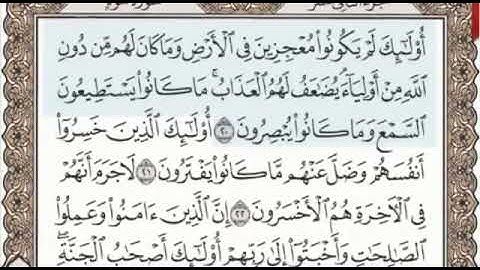 أُوْلَٰٓئِكَ لَمْ يَكُونُواْ مُعْجِزِينَ فِي ٱلْأَرْضِ وَمَا كَانَ لَهُم مِّن دُونِ
ٱللَّهِ مِنْ أَوْلِيَآءَۘ يُضَٰعَفُ لَهُمُ ٱلْعَذَابُۚ مَا كَانُواْ يَسْتَطِيعُونَ
ٱلسَّمْعَ وَمَا كَانُواْ يُبْصِرُونَ ٢٠ أُوْلَٰٓئِكَ ٱلَّذِينَ خَسِرُوٓاْ
أَنفُسَهُمْ وَضَلَّ عَنْهُم مَّا كَانُواْ يَفْتَرُونَ ٢١ لَا جَرَمَ أَنَّهُمْ
فِي ٱلْأٓخِرَةِ هُمُ ٱلْأَخْسَرُونَ ٢٢ إِنَّ ٱلَّذِينَ ءَامَنُواْ وَعَمِلُواْ
ٱلصَّٰلِحَٰتِ وَأَخْبَتُوٓاْ إِلَىٰ رَبِّهِمْ أُوْلَٰٓئِكَ أَصْحَٰبُ ٱلْجَنَّةِۖ